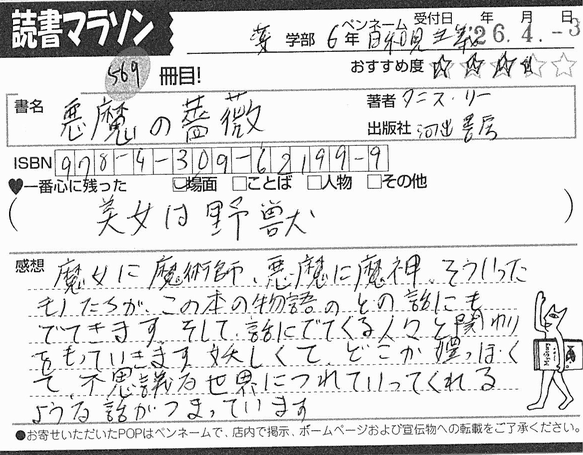 読書マラソン
薬 学部 6年 ペンネーム 日和見主義 受付日 年 月 日
26.4.-3
569 冊目!
おすすめ度
書名 悪魔の薔薇
著者 タニス・リー
出版社 河出書房
ISBN 978-4-309-62199-9
♥一番心に残った □場面 □ことば □人物 □その他
( 美女は野獣 )
感想 魔女に魔術師、悪魔に魔神、そういった
モノたちが、この本の物語のどの話にも
でてきます。そして、話にでてくる人々と関わり
をもっていきます。妖しくて、どこか煙っぽく
て、不思議な世界につれていってくれる
ような話がつまっています
●お寄せいただいたPOPはペンネームで、店内で掲示、ホームページおよび宣伝物への転載をご了承ください。